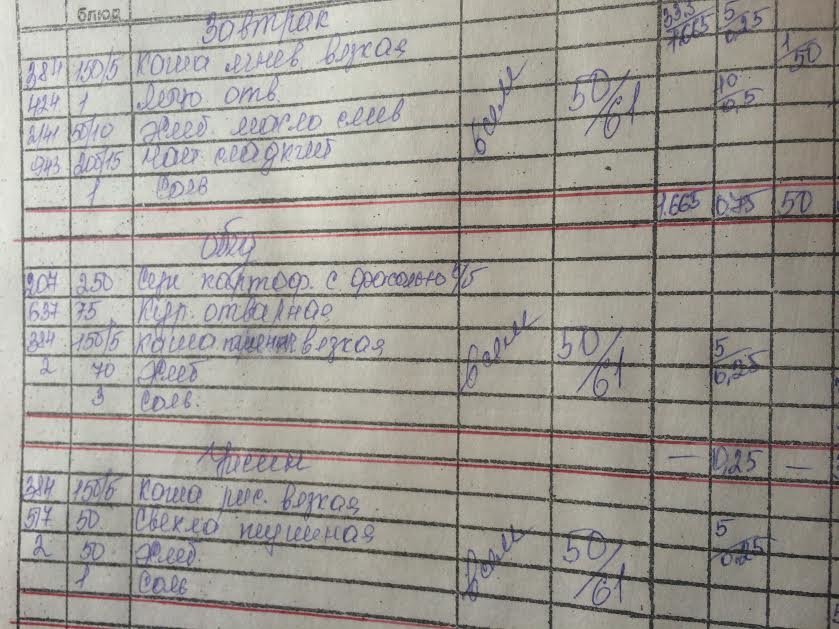 блюд
Завтрак 333/1.665 5/0.25
384 150/5 Каша ячнев. вязкая 1/50
424 1 Яйцо отв. 10/0,5
2/41 50/10 Хлеб. масло слив всем 50/61
943 200/15 Чай сладкий
1 Соль
1.665 0.75 50
Обед
207 250 Суп картоф. с фасолью
637 75 Кур. отварная
384 150/5 каша вязкая всем 50/61 5/0,25
2 70 Хлеб
3 соль.
Ужин — 0,25 —
384 150/5 Каша рис. вязкая
517 50 Свекла тушеная 5/0.25
2 50 Хлеб. всем 50/61
1 Соль